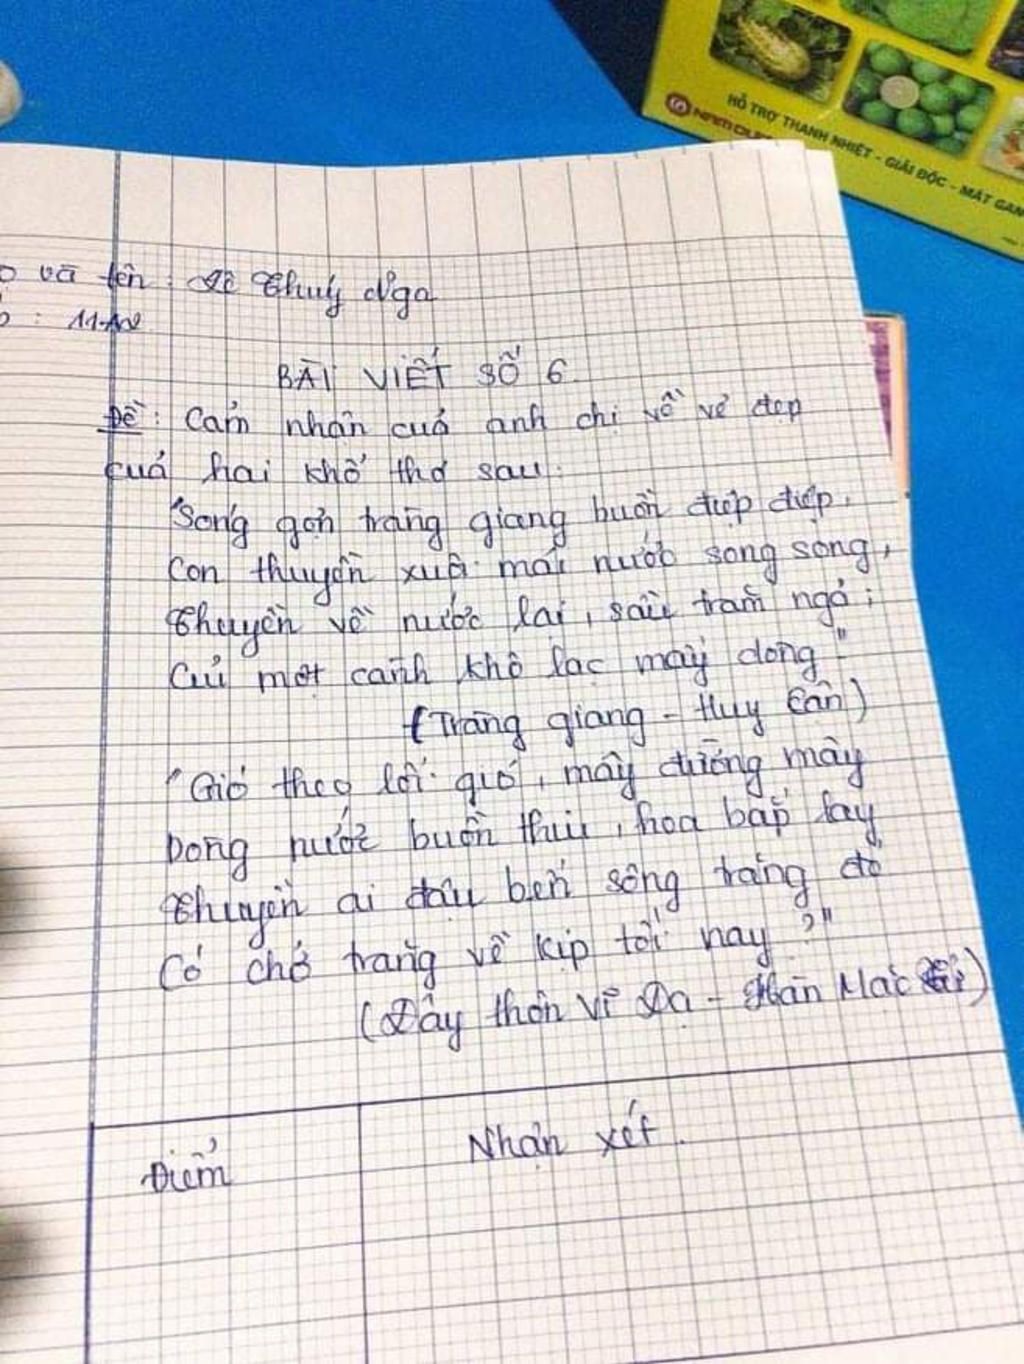 HỖ TRỢ THANH NHIỆT - GIẢI ĐỘC - MÁT GAN
và tên : Lê Thuỳ Nga
: 11A
BÀI VIẾT SỐ 6
Đề : Cảm nhận cuả anh chị về vẻ đẹp
cuả hai khổ thơ sau :
"Sóng gợn tràng giang buồn điệp điệp,
Con thuyền xuôi mái nước song song,
Thuyền về nước lại, sầu trăm ngả ;
Củi một cành khô lạc mấy dòng"
(Tràng giang - Huy Cận)
"Gió theo lối gió, mây đường mây
Dòng nước buồn thiu, hoa bắp lay
Thuyền ai đậu bến sông trăng đó
Có chở trăng về kịp tối nay ?"
(Đây thôn Vĩ Dạ - Hàn Mạc Tử)
Điểm
Nhận xét.